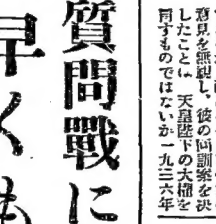 意見を無視し、彼の回訓案を決
したことは 天皇陛下の大権を
すものではないか一九三六年
質問戰に
早くも